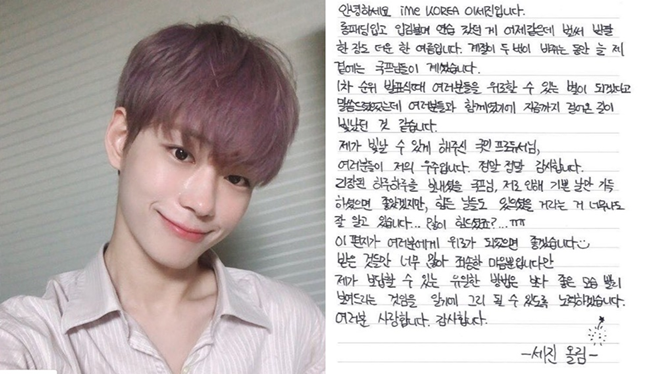 안녕하세요 iMe KOREA 이세진입니다.
롱패딩입고 입김불며 연습 갔던 게 어제같은데 벌써 반팔
한 장도 더운 한 여름입니다. 계절이 두 번이 바뀌는 동안 늘 제
곁에는 국프님들이 계셨습니다.
1차 순위 발표식때 여러분들을 위로할 수 있는 별이 되겠다고
말씀드렸었는데 여러분들과 함께였기에 지금까지 걸어온 길이
빛났던 것 같습니다.
제가 빛날 수 있게 해주신 국민 프로듀서님,
여러분들이 저의 우주입니다. 정말 정말 감사합니다.
긴장된 하루하루를 보내셨을 국프님, 저로 인해 기쁜 날만 가득
하셨으면 좋았겠지만, 힘든 날들도 있으셨을 거라는 거 너무나도
잘 알고 있습니다... 많이 힘드셨죠?... ㅠㅠ
이 편지가 여러분에게 위로가 되었으면 좋겠습니다
받은 것들만 너무 많아 죄송한 마음뿐입니다만
제가 보답할 수 있는 유일한 방법은 보다 좋은 모습 빨리
보여드리는 것임을 알기에 그리 될 수 있도록 노력하겠습니다.
여러분 사랑합니다. 감사합니다.
-세진 올림-